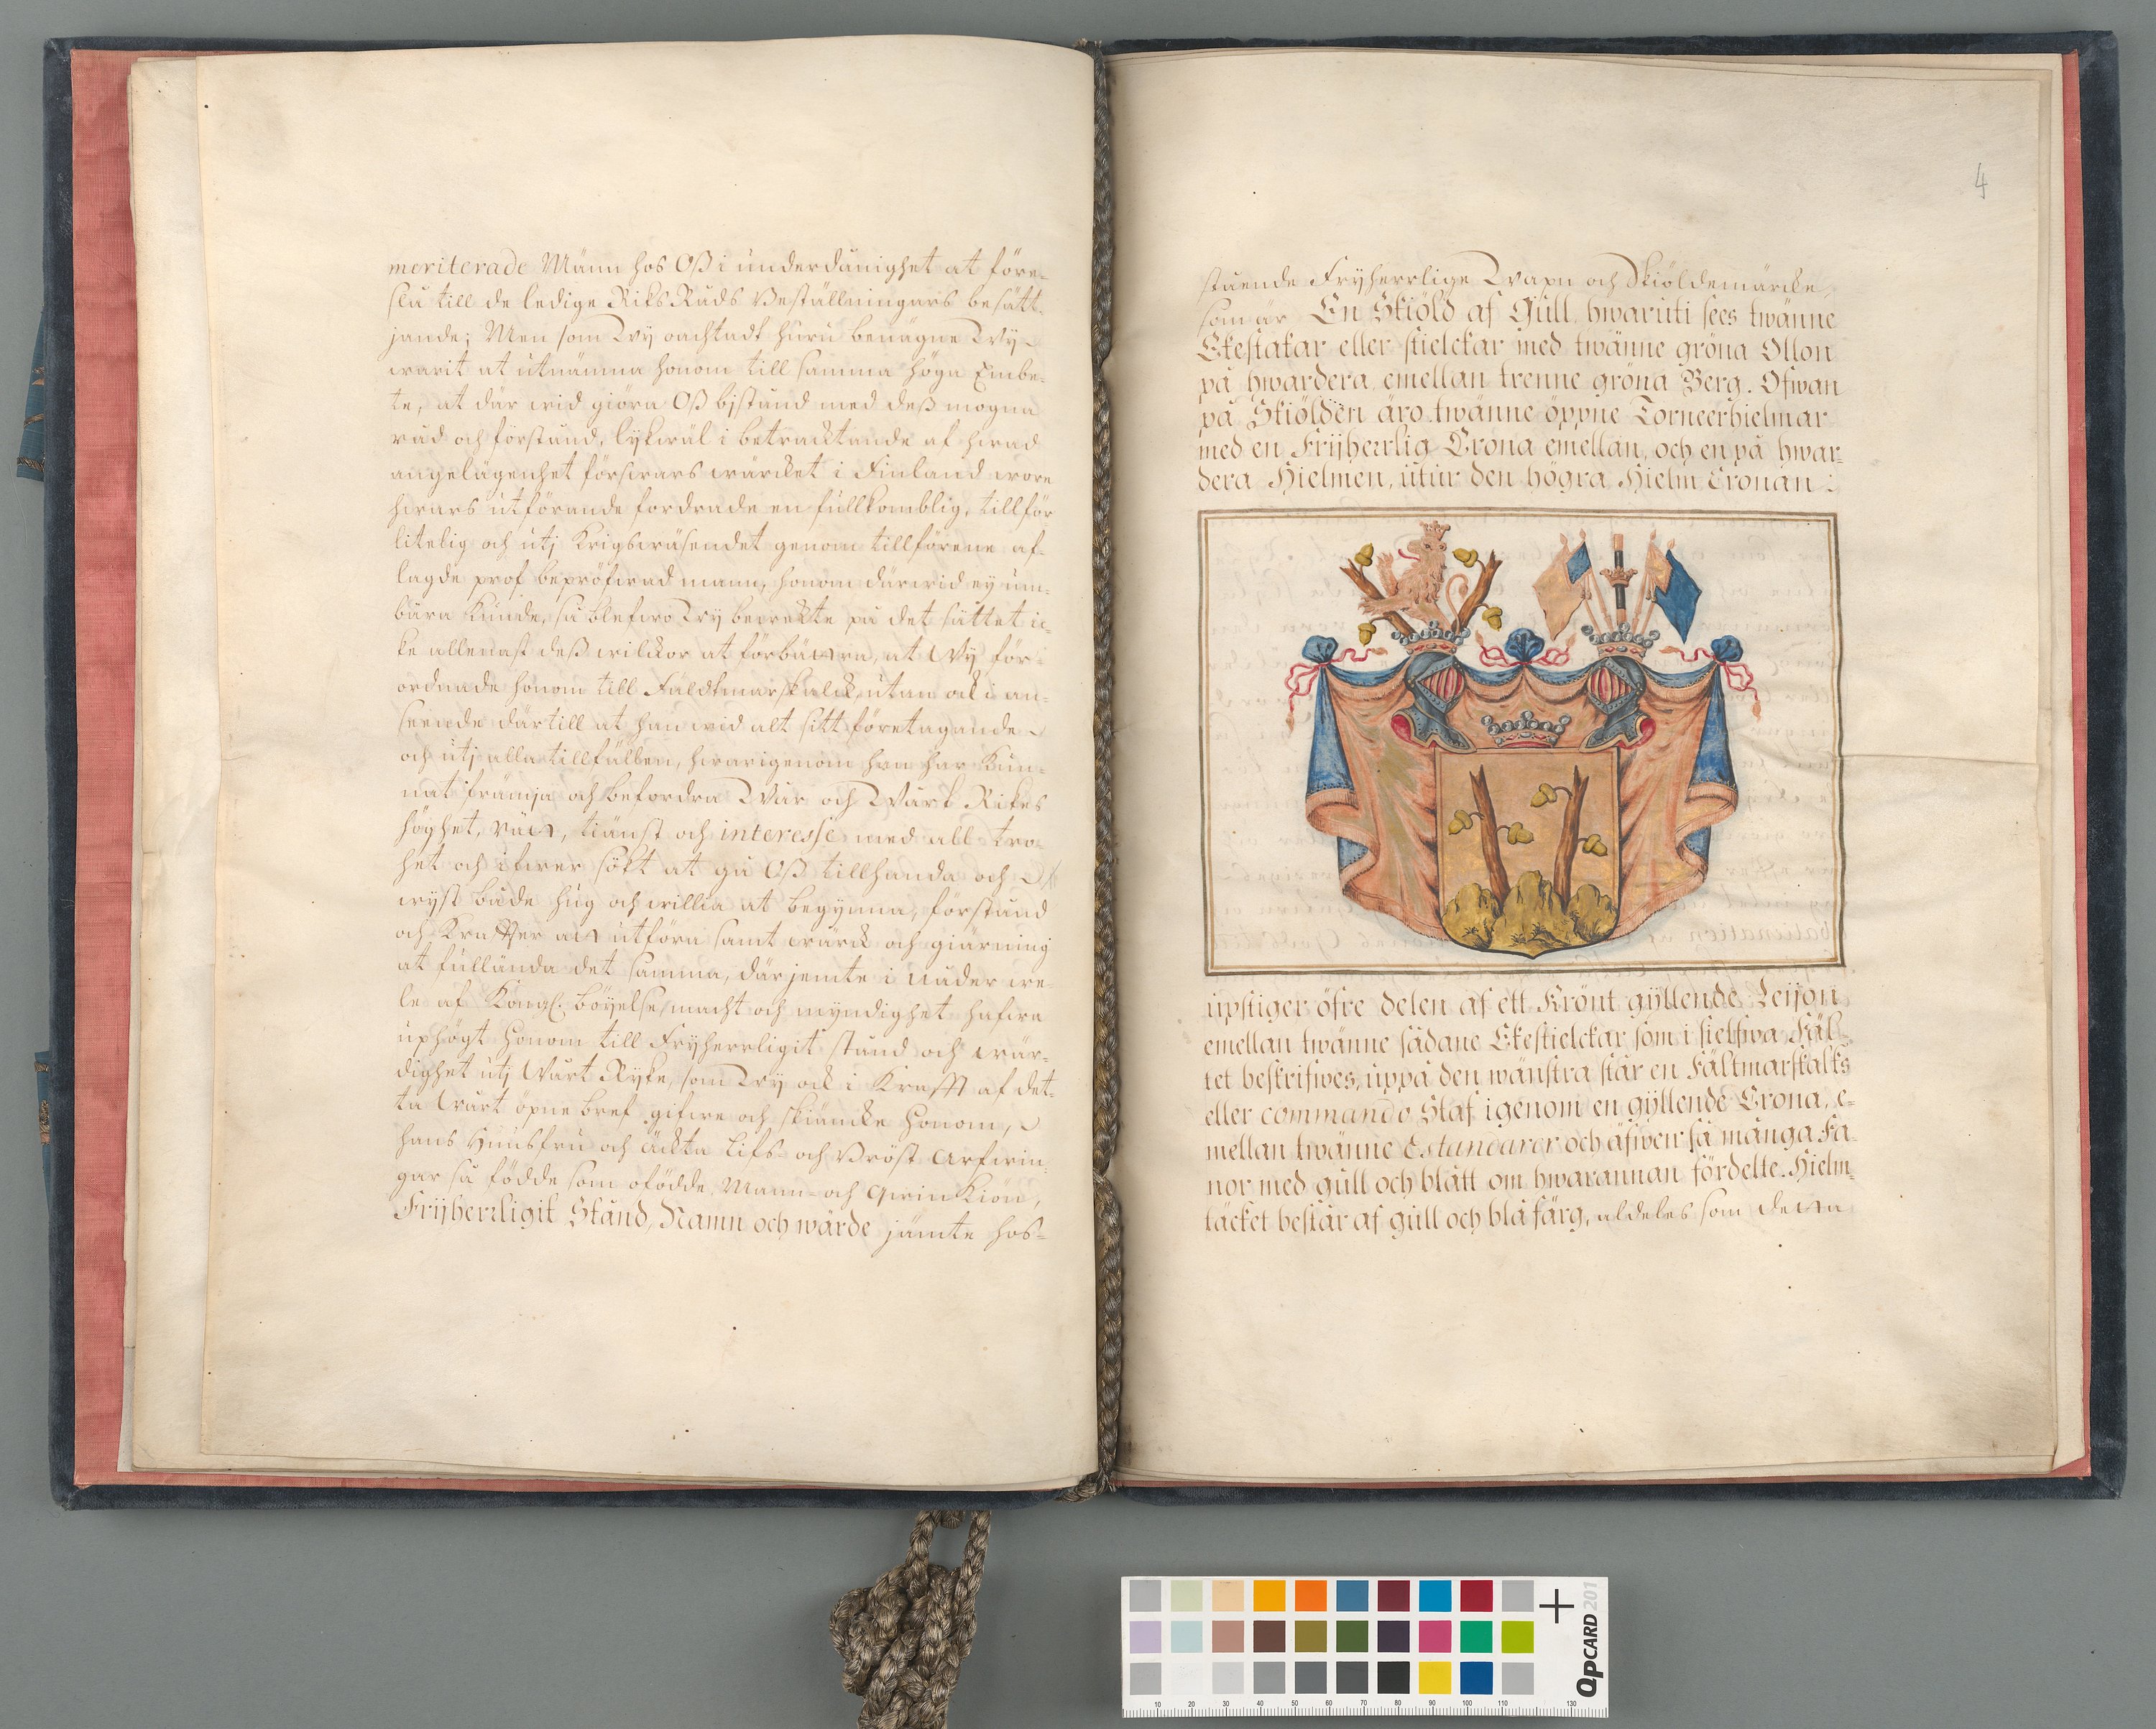 meriterade Männ hos Oß i underdånighet at före-
slå till de ledige Riks Råds Beställningars besätt-
jande; Men som Wy oachtadt huru benägne Wy
warit at utnämna honom till samma höga Embe-
te, at där wid giöra Oß bijstånd med deß mogna
råd och förstånd, lykwäl i betracktande af hwad
angelägenhet förswars wärcket i Finland wore
hwars utförande fordrade en fullkomblig, tillför
litelig och utj Krigswäsendet genom tillförene af-
lagde prof bepröfwad mann, honom därwid ey um-
bära kunde, så blefwo Wy bewekte på det sättet ic-
ke allenast deß wilckor at förbättra, at Wy för-
ordnade honom till Fäldtmarskalck, utan ock i an-
seende därtill at han wid alt sitt företagande
och utj alla tillfällen, hwarigenom han har kun-
nat främja och befordra Wår och Wårt Rikes
höghet, rätt, tiänst och interesse med all tro-
het och ifwer sökt at gå Oß tillhanda och
wyst både hug och willia at begynna, förstånd
och Kraffter att utföra samt wärck och giärning
at fullända det samma, därjemte i nåder we-
le af Kongl. böyelse, macht och myndighet hafwa
uphögt honom till Fryherrligit stånd och wär-
dighet utj Wårt Ryke, som Wy ock i Krafft af det-
ta Wårt öpne bref gifwe och skiäncke honom,
hans Huusfru och äckta Lifs- och Bröst Arfwin-
gar så födde som ofödde, Mann- och Qwin Kiön,
Frijherrligit Stånd, Namn och wärde jämte hos-
4
stående Fryherrlige Wapn och Skiöldemärcke,
som är En Skiöld af Gull, hwaruti sees twänne
Ekestakar eller stielckar med twänne gröna Ollon
på hwardera, emellan trenne gröna Berg. Ofwan
på Skiölden äro twänne öppne Torneerhielmar
med en Frijherrlig Crona emellan, och en på hwar-
dera Hielmen, utur den högra Hielm Cronan
upstiger öfre delen af ett Krönt gyllende Leijon
emellan twänne sådane Ekestielckar som i sielfwa Fäl-
tet beskrifwes, uppå den wänstra står en Fältmarskalks
eller commando Staf igenom en gyllende Crona, e-
mellan twänne Estandarer och äfwen så många Fa-
nor med gull och blått om hwarannan fördelte. Hielm-
täcket består af gull och blå färg, aldeles som detta
QPCARD 201
10 20 30 40 50 60 70 80 90 100 110 130